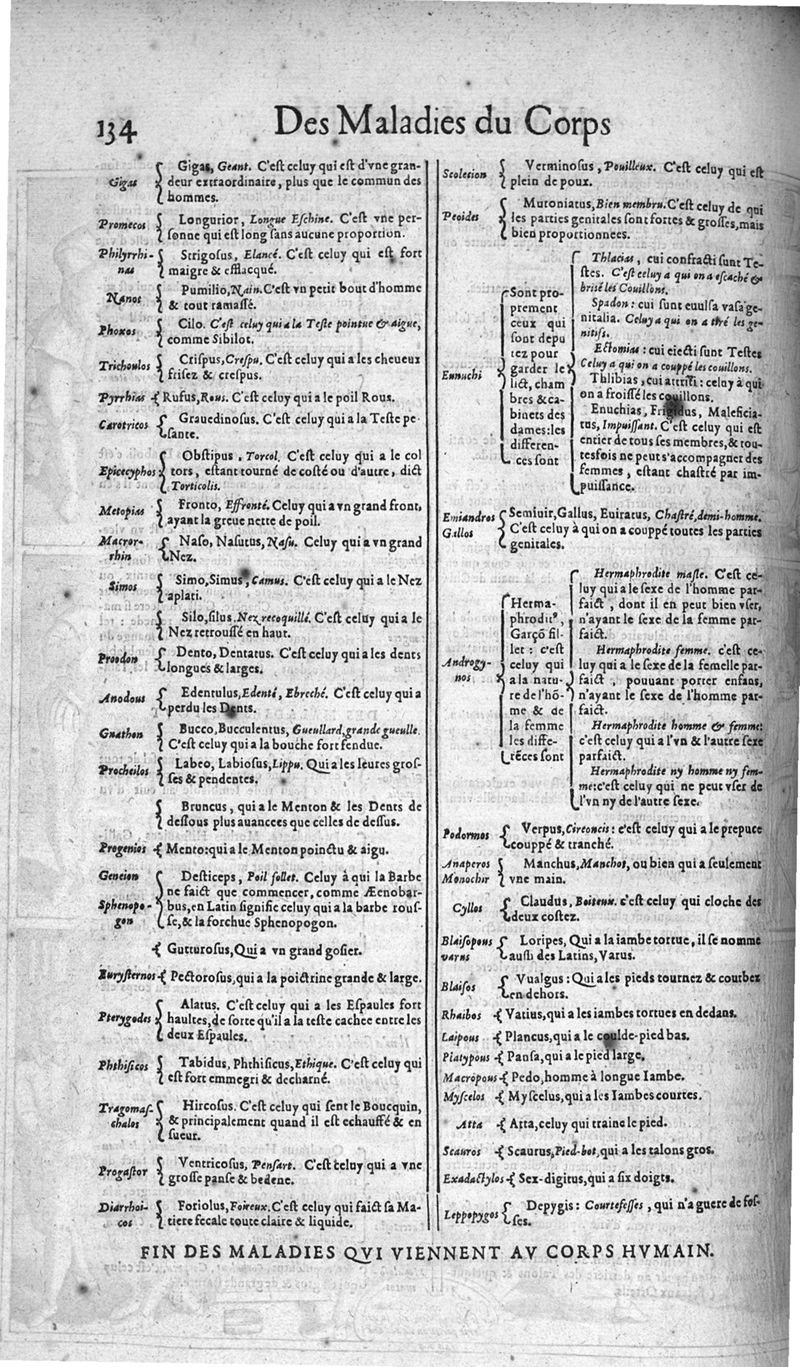 134
Des Maladies du Corps
Gigas
Gigas, Geant. C'est celuy qui est d'vne gran-
deur extraordinaire, plus que le commun des
hommes.
Promecos
Longurior, Longue Eschine. C'est vne per-
sonne qui est long sans aucune proportion.
Philyrrhi-
nas
Strigosus, Elancé. C'est celuy qui est fort
maigre & efflacqué.
Nanos
Pumilio, Nain. C'est vn petit bout d'homme
& tout ramassé.
Phoxos
Cilo. C'est celuy qui a la Teste pointue & aigue,
comme Sibilot.
Trichoulos
Crispus, Crespu. C'est celuy qui a les cheueux
frisez & crespus.
Pyrrhias
Rufus, Rous. C'est celuy qui a le poil Rous.
Carotricos
Grauedinosus. C'est celuy qui a la Teste pe-
sante.
Epicecyphos
Obstipus, Torcol. C'est celuy qui a le col
tors, estant tourné de costé ou d'autre, dict
Torticolis.
Metopias
Fronto, Effronté. Celuy qui a vn grand front,
ayant la greue nette de poil.
Macror-
rhin
Naso, Nasutus, Nasu. Celuy qui a vn grand
Nez.
Simos
Simo, Simus, Camus. C'est celuy qui a le Nez
aplati.
Silo, silus. Nez recoquillé. C'est celuy qui a le
Nez retroussé en haut.
Proodon
Dento, Dentatus. C'est celuy qui a les dents
longues & larges.
Anodous
Edentulus, Edenté, Ebreché. C'est celuy qui a
perdu les Dents.
Gnathon
Bucco, Bucculentus, Gueullard, grande gueulle.
C'est celuy qui a la bouche fort fendue.
Procheilos
Labeo, Labiosus, Lippu. Qui a les leures gros-
ses & pendentes.
Bruncus, qui a le Menton & les Dents de
dessous plus auancees que celles de dessus.
Progenios
Mento: qui a le Menton poinctu & aigu.
Geneion
Sphenopo-
gon
Desticeps, Poil follet. Celuy à qui la Barbe
ne faict que commencer, comme Ænobar-
bus, en Latin signifie celuy qui a la barbe rous-
se, & la forchue Sphenopogon.
Gutturosus, Qui a vn grand gosier.
Eurysternos
Pectorosus, qui a la poictrine grande & large.
Pterygodes
Alatus. C'est celuy qui a les Espaules fort
haultes, de sorte qu'il a la teste cachee entre les
deux Espaules.
Phthisicos
Tabidus, Phthisicus, Ethique. C'est celuy qui
est fort emmegri & decharné.
Tragomas-
chalos
Hircosus. C'est celuy qui sent le Boucquin,
& principalement quand il est echauffé & en
sueur.
Progastor
Ventricosus, Pensart. C'est celuy qui a vne
grosse panse & bedene.
Diarrhoi-
cos
Foriolus, Foireux. C'est celuy qui faict sa Ma-
tiere fecale toute claire & liquide.
Scolecion
Verminosus, Pouilleux. C'est celuy qui est
plein de poux.
Peoides
Muroniatus, Bien membru. C'est celuy de qui
les parties genitales sont fortes & grosses, mais
bien proportionnees.
Eunuchi
Sont pro-
prement
ceux qui
sont depu
tez pour
garder le
lict, cham
bres & ca-
binets des
dames: les
differen-
ces sont
Thlacias, cui confracti sunt Te-
stes. C'est celuy a qui on a escaché &
brisé les Couillons.
Spadon: cui sunt euulsa vasa ge-
nitalia. Celuy a qui on a tiré les ge-
nitifs.
Ectomias: cui eiecti sunt Testes
Celuy a qui on a couppé les couillons.
Thlibias, cui attriti: celuy à qui
on a froissé les couillons.
Enuchias, Frigidus, Maleficia-
tus, Impuissant. C'est celuy qui est
entier de tous ses membres, & tou-
tesfois ne peut s'accompagner des
femmes, estant chastré par im-
puissance.
Emiandros
Gallos
Semiuir, Gallus, Euiratus, Chastré, demi-homme.
C'est celuy à qui on a couppé toutes les parties
genitales.
Androgy-
nos
Herma-
phrodit⁹,
Garçō fil-
let: c'est
celuy qui
a la natu-
re de l'hō-
me & de
la femme
les diffe-
rēces sont
Hermaphrodite masle. C'est ce-
luy qui a le sexe de l'homme par-
faict, dont il en peut bien vser,
n'ayant le sexe de la femme par-
faict.
Hermaphrodite femme. c'est ce-
luy qui a le sexe de la femelle par-
faict, pouuant porter enfans,
n'ayant le sexe de l'homme par-
faict.
Hermaphrodite homme & femme:
c'est celuy qui a l'vn & l'autre sexe
parfaict.
Hermaphrodite ny homme ny fem-
me: c'est celuy qui ne peut vser de
l'vn ny de l'autre sexe.
Podormos
Verpus, Circoncis: c'est celuy qui a le prepuce
couppé & tranché.
Anaperos
Monochir
Manchus, Manchot, ou bien qui a seulement
vne main.
Cyllos
Claudus, Boiteux. c'est celuy qui cloche des
deux costez.
Blaisopous
varus
Loripes, Qui a la iambe tortue, il se nomme
aussi des Latins, Varus.
Blaisos
Vualgus: Qui a les pieds tournez & courbez
en dehors.
Rhaibos
Vatius, qui a les iambes tortues en dedans.
Laipous
Plancus, qui a le coulde-pied bas.
Platypous
Pansa, qui a le pied large.
Macropous
Pedo, homme à longue Iambe.
Myscelos
Myscelus, qui a les Iambes courtes.
Atta
Atta, celuy qui traine le pied.
Scauros
Scaurus, Pied-bot, qui a les talons gros.
Exadactylos
Sex-digitus, qui a six doigts.
Leppopygos
Depygis: Courtefesses, qui n'a guere de fes-
ses.
FIN DES MALADIES QVI VIENNENT AV CORPS HVMAIN.